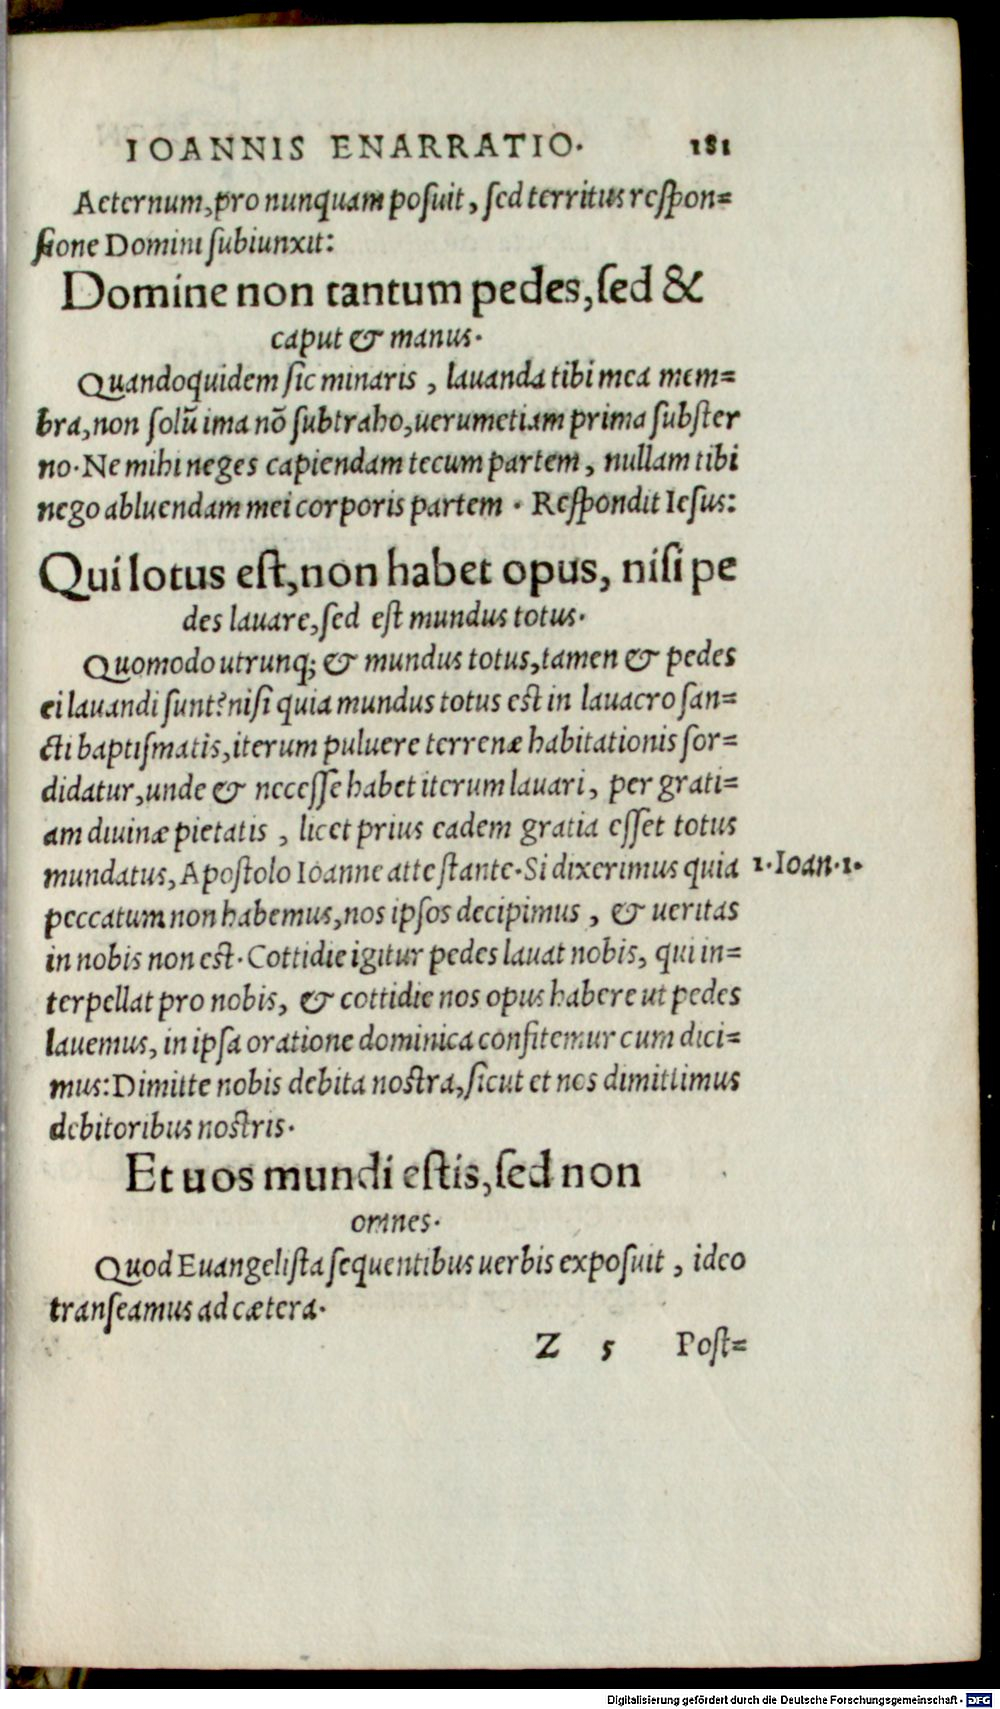 IOANNIS ENARRATIO. 181
Aeternum, pro nunquam posuit, sed territus respon=
sione Domini subiunxit:
Domine non tantum pedes, sed &
caput & manus.
Quandoquidem sic minaris, lauanda tibi mea mem=
bra, non solū ima nō subtraho, uerumetiam prima subster
no. Ne mihi neges capiendam tecum partem, nullam tibi
nego abluendam mei corporis partem. Respondit Iesus:
Qui lotus est, non habet opus, nisi pe
des lauare, sed est mundus totus.
Quomodo utrunq; & mundus totus, tamen & pedes
ei lauandi sunt? nisi quia mundus totus est in lauacro san=
cti baptismatis, iterum puluere terrenæ habitationis sor=
didatur, unde & necesse habet iterum lauari, per grati=
am diuinæ pietatis, licet prius eadem gratia esset totus
mundatus, Apostolo Ioanne attestante. Si dixerimus quia
1. Ioan. 1.
peccatum non habemus, nos ipsos decipimus, & ueritas
in nobis non est. Cottidie igitur pedes lauat nobis, qui in=
terpellat pro nobis, & cottidie nos opus habere ut pedes
lauemus, in ipsa oratione dominica confitemur cum dici=
mus: Dimitte nobis debita nostra, sicut et nos dimittimus
debitoribus nostris.
Et uos mundi estis, sed non
omnes.
Quod Euangelista sequentibus uerbis exposuit, ideo
transeamus ad cætera.
Z 5 Post=
Digitalisierung gefördert durch die Deutsche Forschungsgemeinschaft - DFG